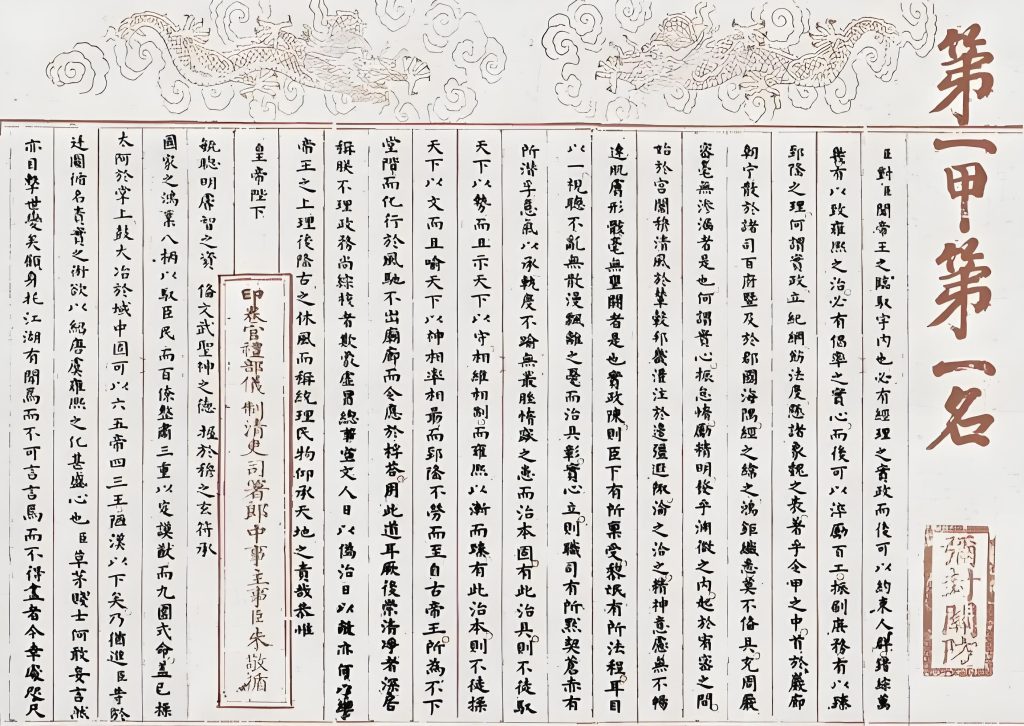 第一甲第一名
彌封關防
臣對臣聞帝王之臨馭宇內也必有經理之實政而後可以約束人群錯綜萬
幾有以致雍熙之治必有倡率之實心而後可以淬勵百工振刷庶務有以臻
郅隆之理何謂實政立紀綱飭法度懸諸象魏之表著乎令甲之中首於巖廊
朝宁散於諸司百府暨及於郡國海隅經之緯之鴻鉅纖悉莫不備具充周嚴
密毫無滲漏者是也何謂實心振怠惰勵精明發乎淵微之內起於宥密之間
始於宮闈穆清風於輦轂邦畿灌注於邊疆遐陬淪之洽之精神意慮無不暢
達肌膚形骸毫無壅閼者是也實政陳則臣下有所稟受黎氓有所法程耳目
以一視聽不亂無散漫飄離之憂而治具彰實心立則職司有所默契蒼赤有
所潛孚意氣以承軌度不踰無叢脞惰窳之患而治本固有此治具則不徒馭
天下以勢而且示天下以守相維相制而雍熙以漸而臻有此治本則不徒操
天下以文而且喻天下以神相率相勗而郅隆不勞而至自古帝王所為不下
堂階而化行於風馳不出廟廊而令應於桴答用此道耳厥後崇清凈者深居
稱朕不理政務尚綜核者欺蒙虛冒總事空文人日以偽治日以敝亦何以繼
帝王之上理後隆古之休風而稱統理民物仰承天地之責哉恭惟
皇帝陛下
毓聰明睿智之資備文武聖神之德握於穆之玄符承
印卷官禮部儀制清吏司署郎中事主事臣朱敬循
國家之鴻業八柄以馭臣民而百僚整肅三重以定謨猷而九圍式命蓋已操
太阿於掌上鼓大冶於域中固可以六五帝四三王陋漢以下矣乃猶進臣等於
廷圖循名責實之術欲以紹唐虞雍熙之化甚盛心也臣草茅賤士何敢妄言然
亦目擊世變矣顧身托江湖有聞焉而不可言言焉而不得盡者今幸處咫尺